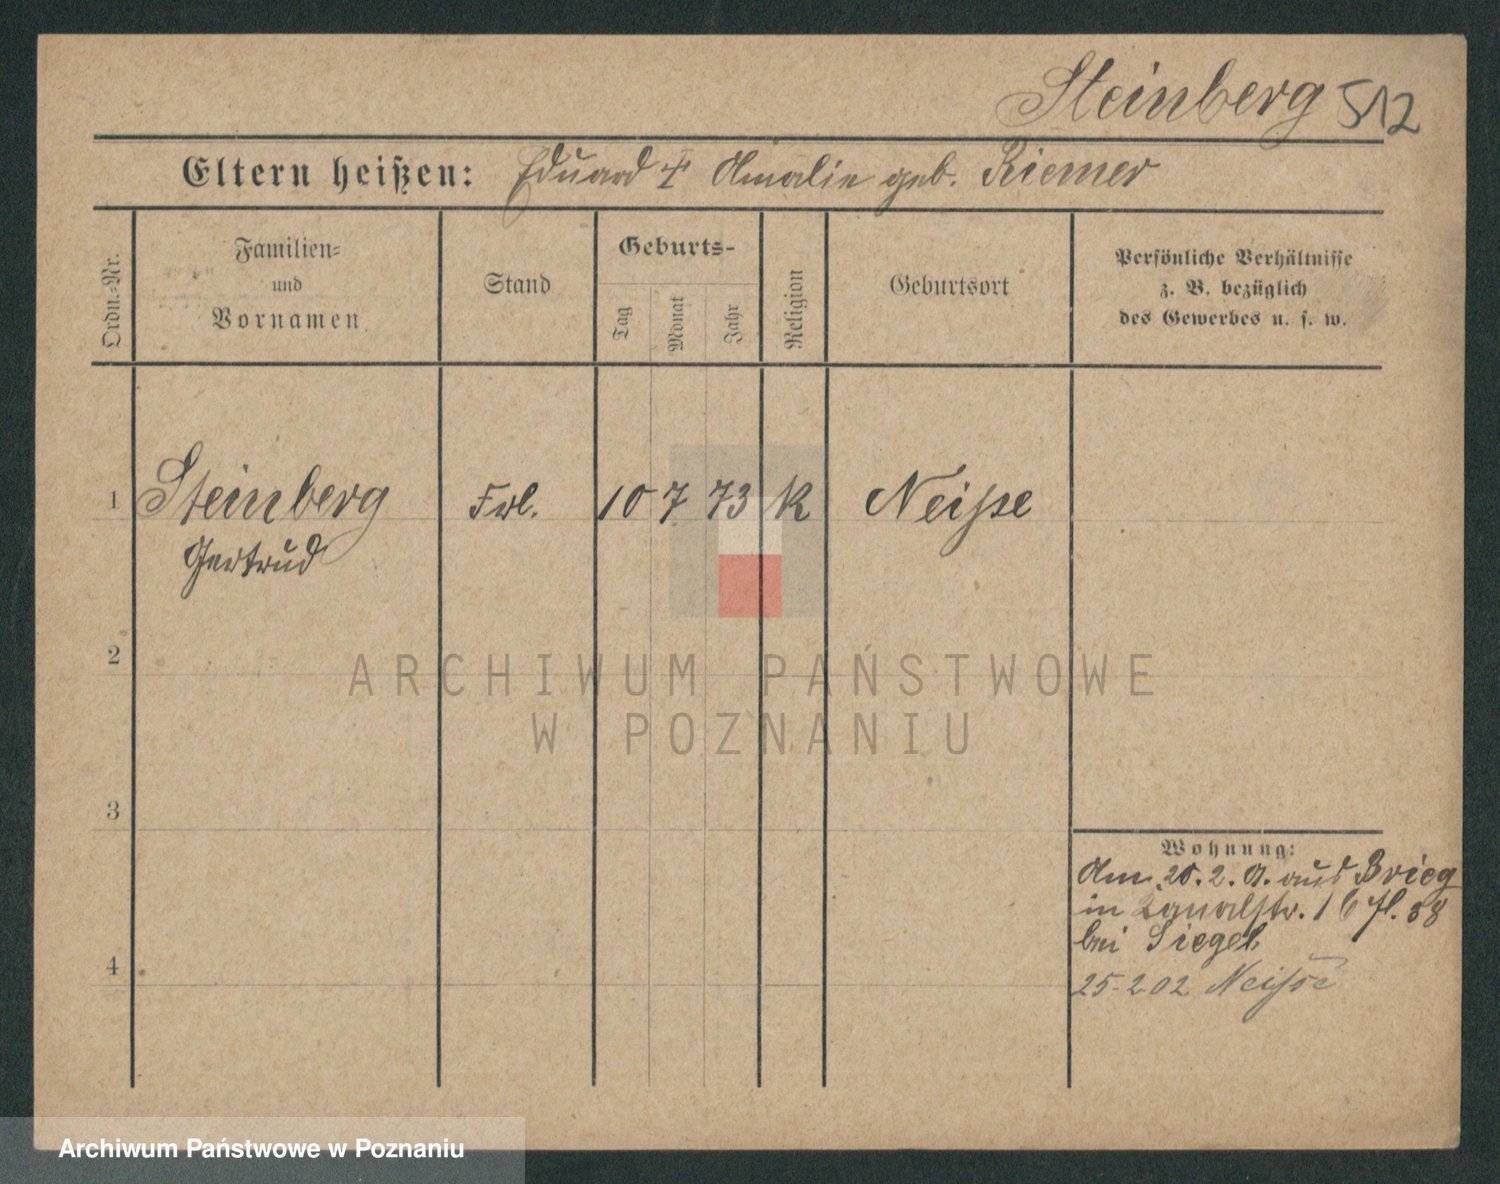 Steinberg 512
Eltern heißen: Eduard † Amalie geb. Riemer
Ordn.-Nr.
Familien-
und
Vornamen
Stand
Geburts-
Tag
Monat
Jahr
Religion
Geburtsort
Persönliche Verhältnisse
z. B. bezüglich
des Gewerbes u. s. w.
1 Steinberg Frl. 10 7 73 K Neisse
Gertrud
2
3
4
Wohnung:
Am 20.2. a. aus Brieg
in Kanalstr. 16
bei Siegel
25-2 02 Neisse
ARCHIWUM PAŃSTWOWE
W POZNANIU
Archiwum Państwowe w Poznaniu